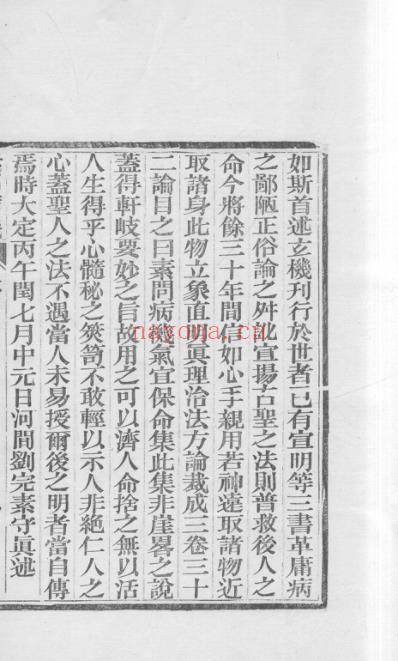 如斯首述玄機刊行於世者已有宣明等三書革庸病
之鄙陋正俗論之舛訛宣揚古聖之法則普救後人之
命今將餘三十年間信如心手親用若神遠取諸物近
取諸身此物立象直明眞理治法方論裁成三卷三十
二論目之曰素問病機氣宜保命集此集非崖畧之說
蓋得軒岐要妙之旨故用之可以濟人命捨之無以活
人生得乎心髓秘之篋笥不敢輕以示人非絶仁人之
心蓋聖人之法不遇當人未易授爾後之明者當自傳
焉時大定丙午閏七月中元日河間劉完素守眞述
nayona.cn